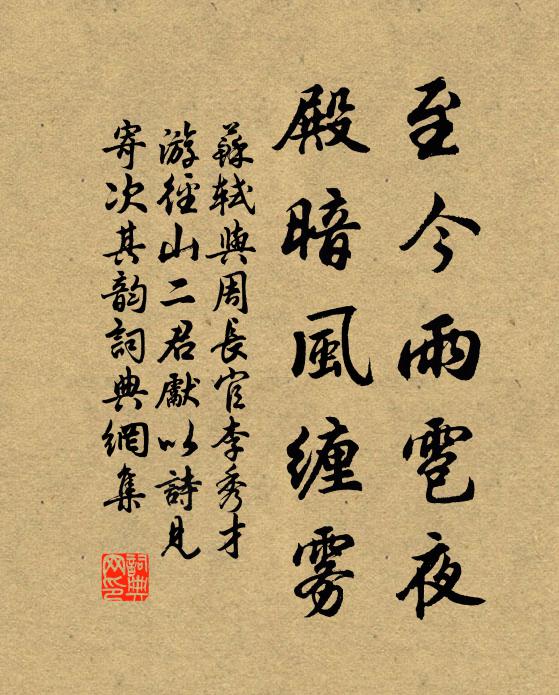 至今雨雹夜
殿暗風纏雾
蘇軾與周長官李秀才
游徑山二君獻以詩見
寄次其韵詞典網集
詞典網印